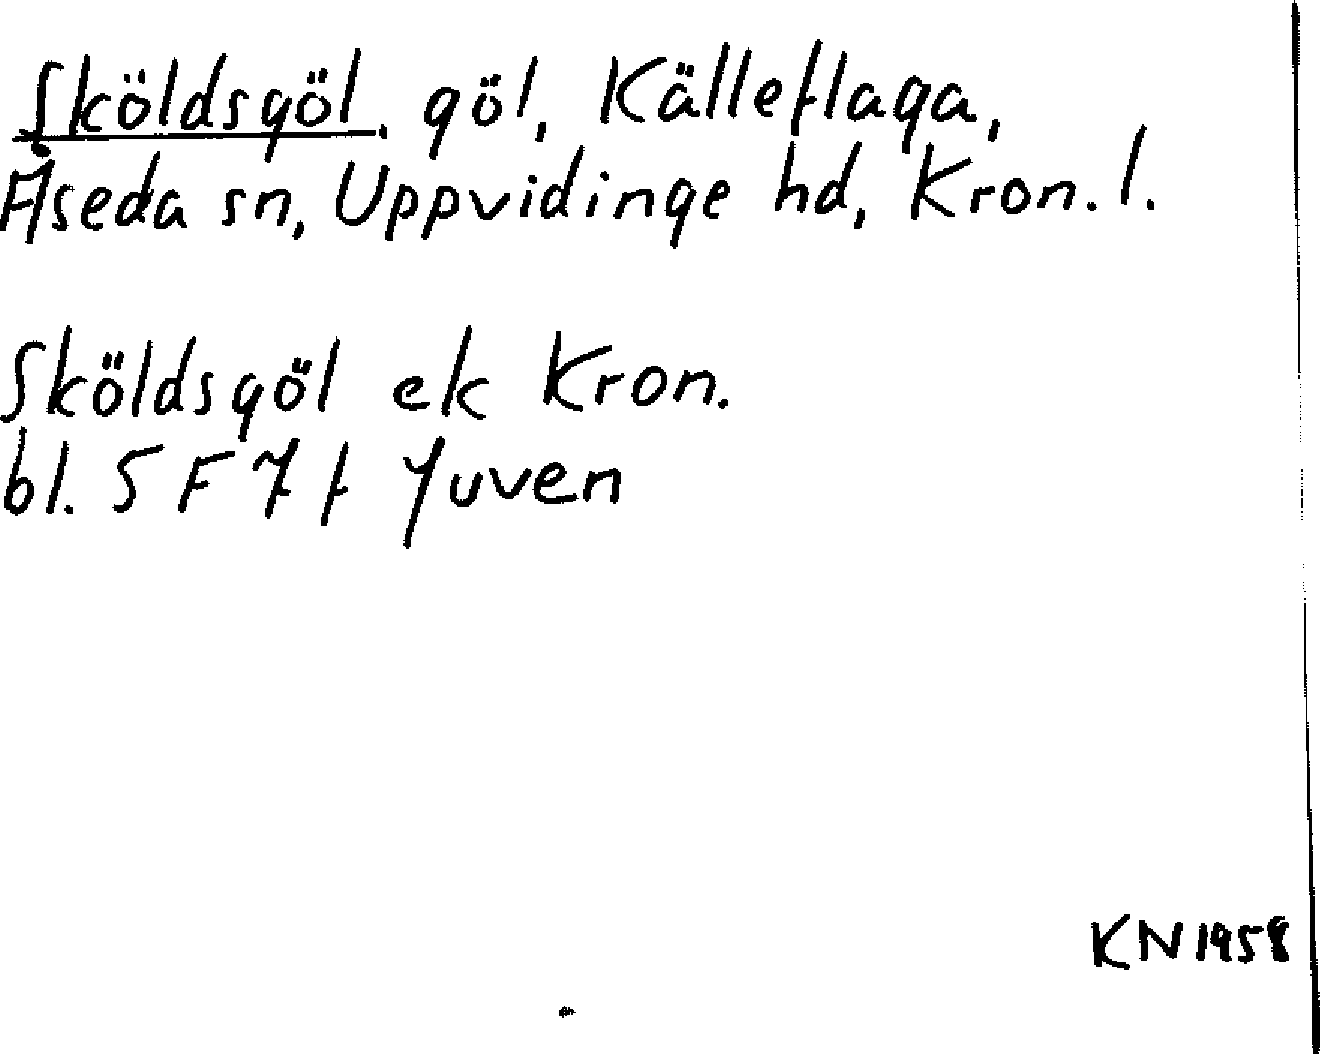 Sköldsgöl, göl, Källeflaga,
Åseda sn, Uppvidinge hd, Kron. l.
Sköldsgöl ek Kron.
bl. 5 F 7 f Juven
KN 1958